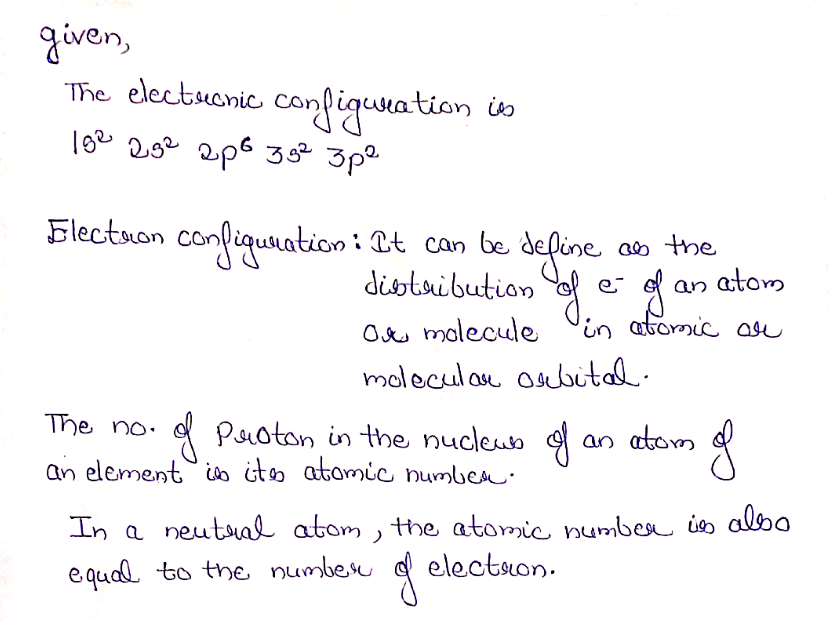 given,
The electronic configuration is
1s² 2s² 2p⁶ 3s² 3p²
Electron configuration : It can be define as the
distribution of e⁻ of an atom
or molecule in atomic or
molecular orbital.
The no. of Proton in the nucleus of an atom of
an element is its atomic number.
In a neutral atom, the atomic number is also
equal to the number of electron.